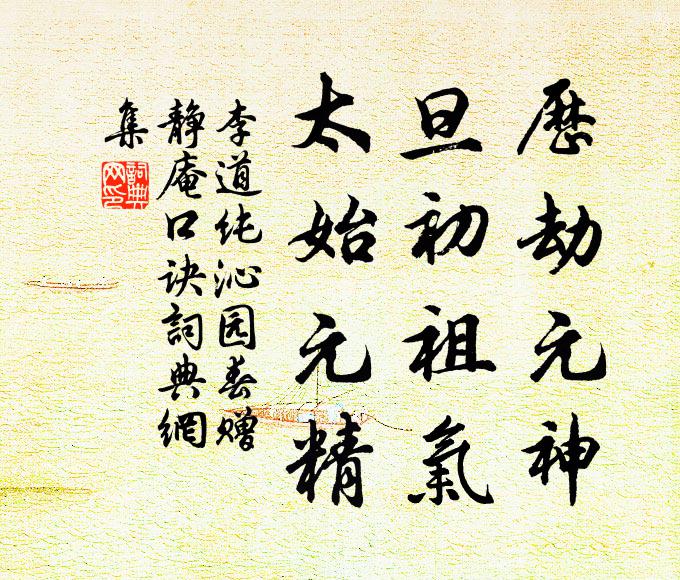 歷劫元神
旦初祖氣
太始元精
李道纯沁园春赠
静庵口诀詞典網
集
詞典網印